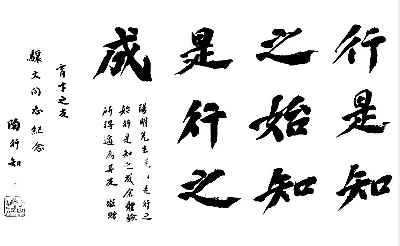 行是知
之始知
是行之
成
陽明先生 是行之
始行是知之成余體驗
所得適為其反 敬贈
育才之友
文同志紀念
陶行知